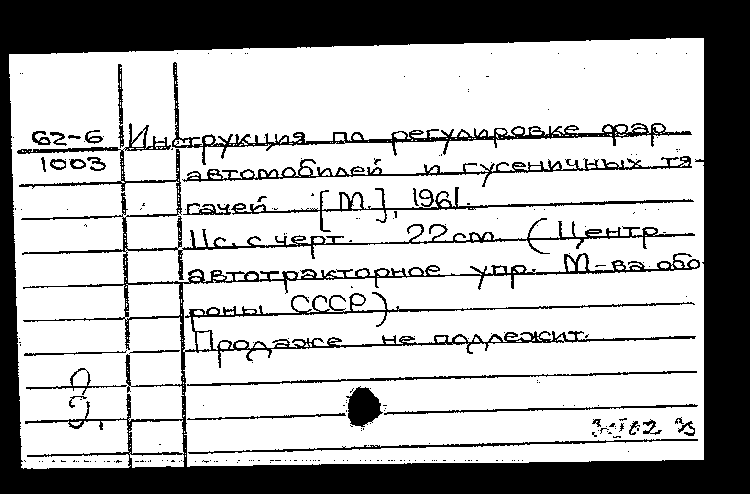 62-6
1003
Инструкция по регулировке фар
автомобилей и гусеничных тя-
гачей. [М.], 1961.
11с. с черт. 22 cm. (Центр.
автотракторное упр. М-ва обо-
роны СССР).
Продаже не подлежит.